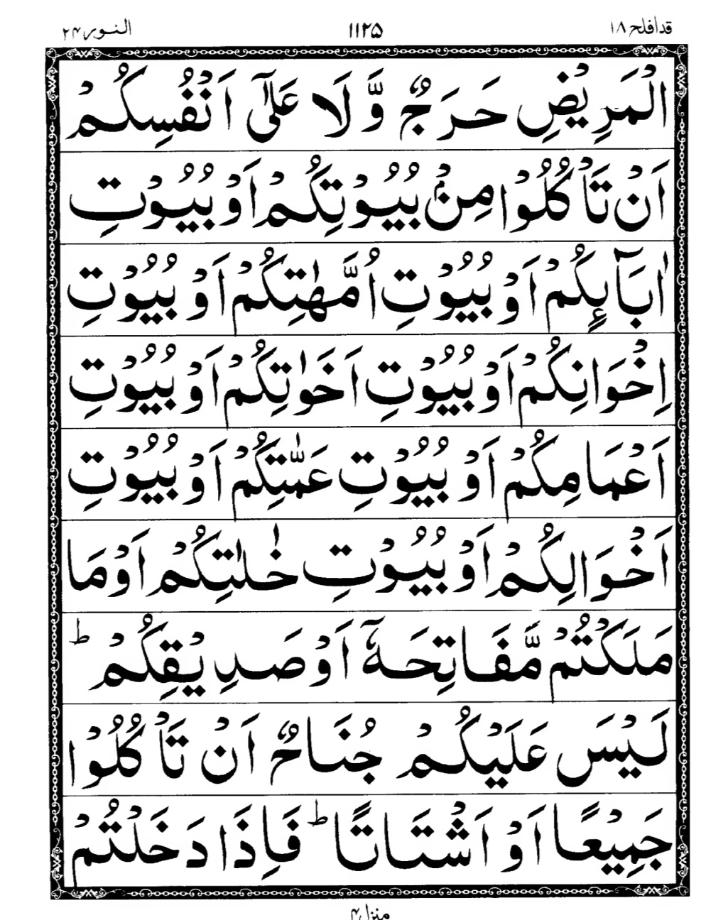 قدافلح ۱۸ ۱۱۲۵ النور ۲۴
الْمَرِيْضِ حَرَجٌ وَّ لَا عَلٰٓى اَنْفُسِكُمْ
اَنْ تَاْكُلُوْا مِنْۢ بُيُوْتِكُمْ اَوْ بُيُوْتِ
اٰبَآىِٕكُمْ اَوْ بُيُوْتِ اُمَّهٰتِكُمْ اَوْ بُيُوْتِ
اِخْوَانِكُمْ اَوْ بُيُوْتِ اَخَوٰتِكُمْ اَوْ بُيُوْتِ
اَعْمَامِكُمْ اَوْ بُيُوْتِ عَمّٰتِكُمْ اَوْ بُيُوْتِ
اَخْوَالِكُمْ اَوْ بُيُوْتِ خٰلٰتِكُمْ اَوْ مَا
مَلَكْتُمْ مَّفَاتِحَهٗۤ اَوْ صَدِيْقِكُمْ ؕ
لَيْسَ عَلَيْكُمْ جُنَاحٌ اَنْ تَاْكُلُوْا
جَمِيْعًا اَوْ اَشْتَاتًا ؕ فَاِذَا دَخَلْتُمْ
منزل ۴